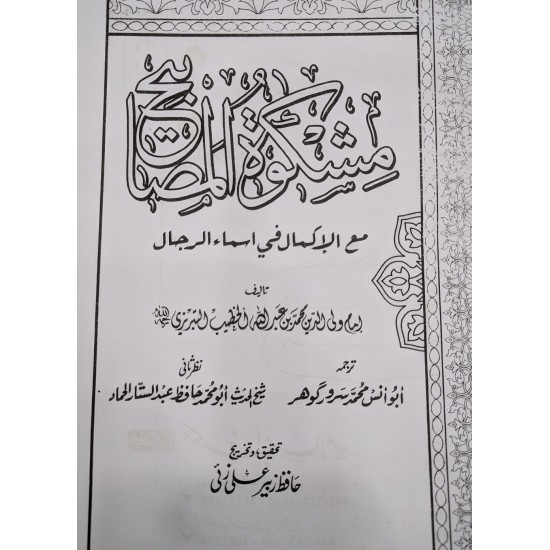 مشکوٰۃ المصابیح
مع الإكمال في اسماء الرجال
تالیف
امام ولی الدین محمد بن عبد اللہ الخطیب التبریزی رحمہ اللہ
ترجمہ
ابو انس محمد سرور گوھر
نظرثانی
شیخ الحدیث ابو محمد حافظ عبد الستار الحماد
تحقیق و تخریج
حافظ زبیر علی زئی